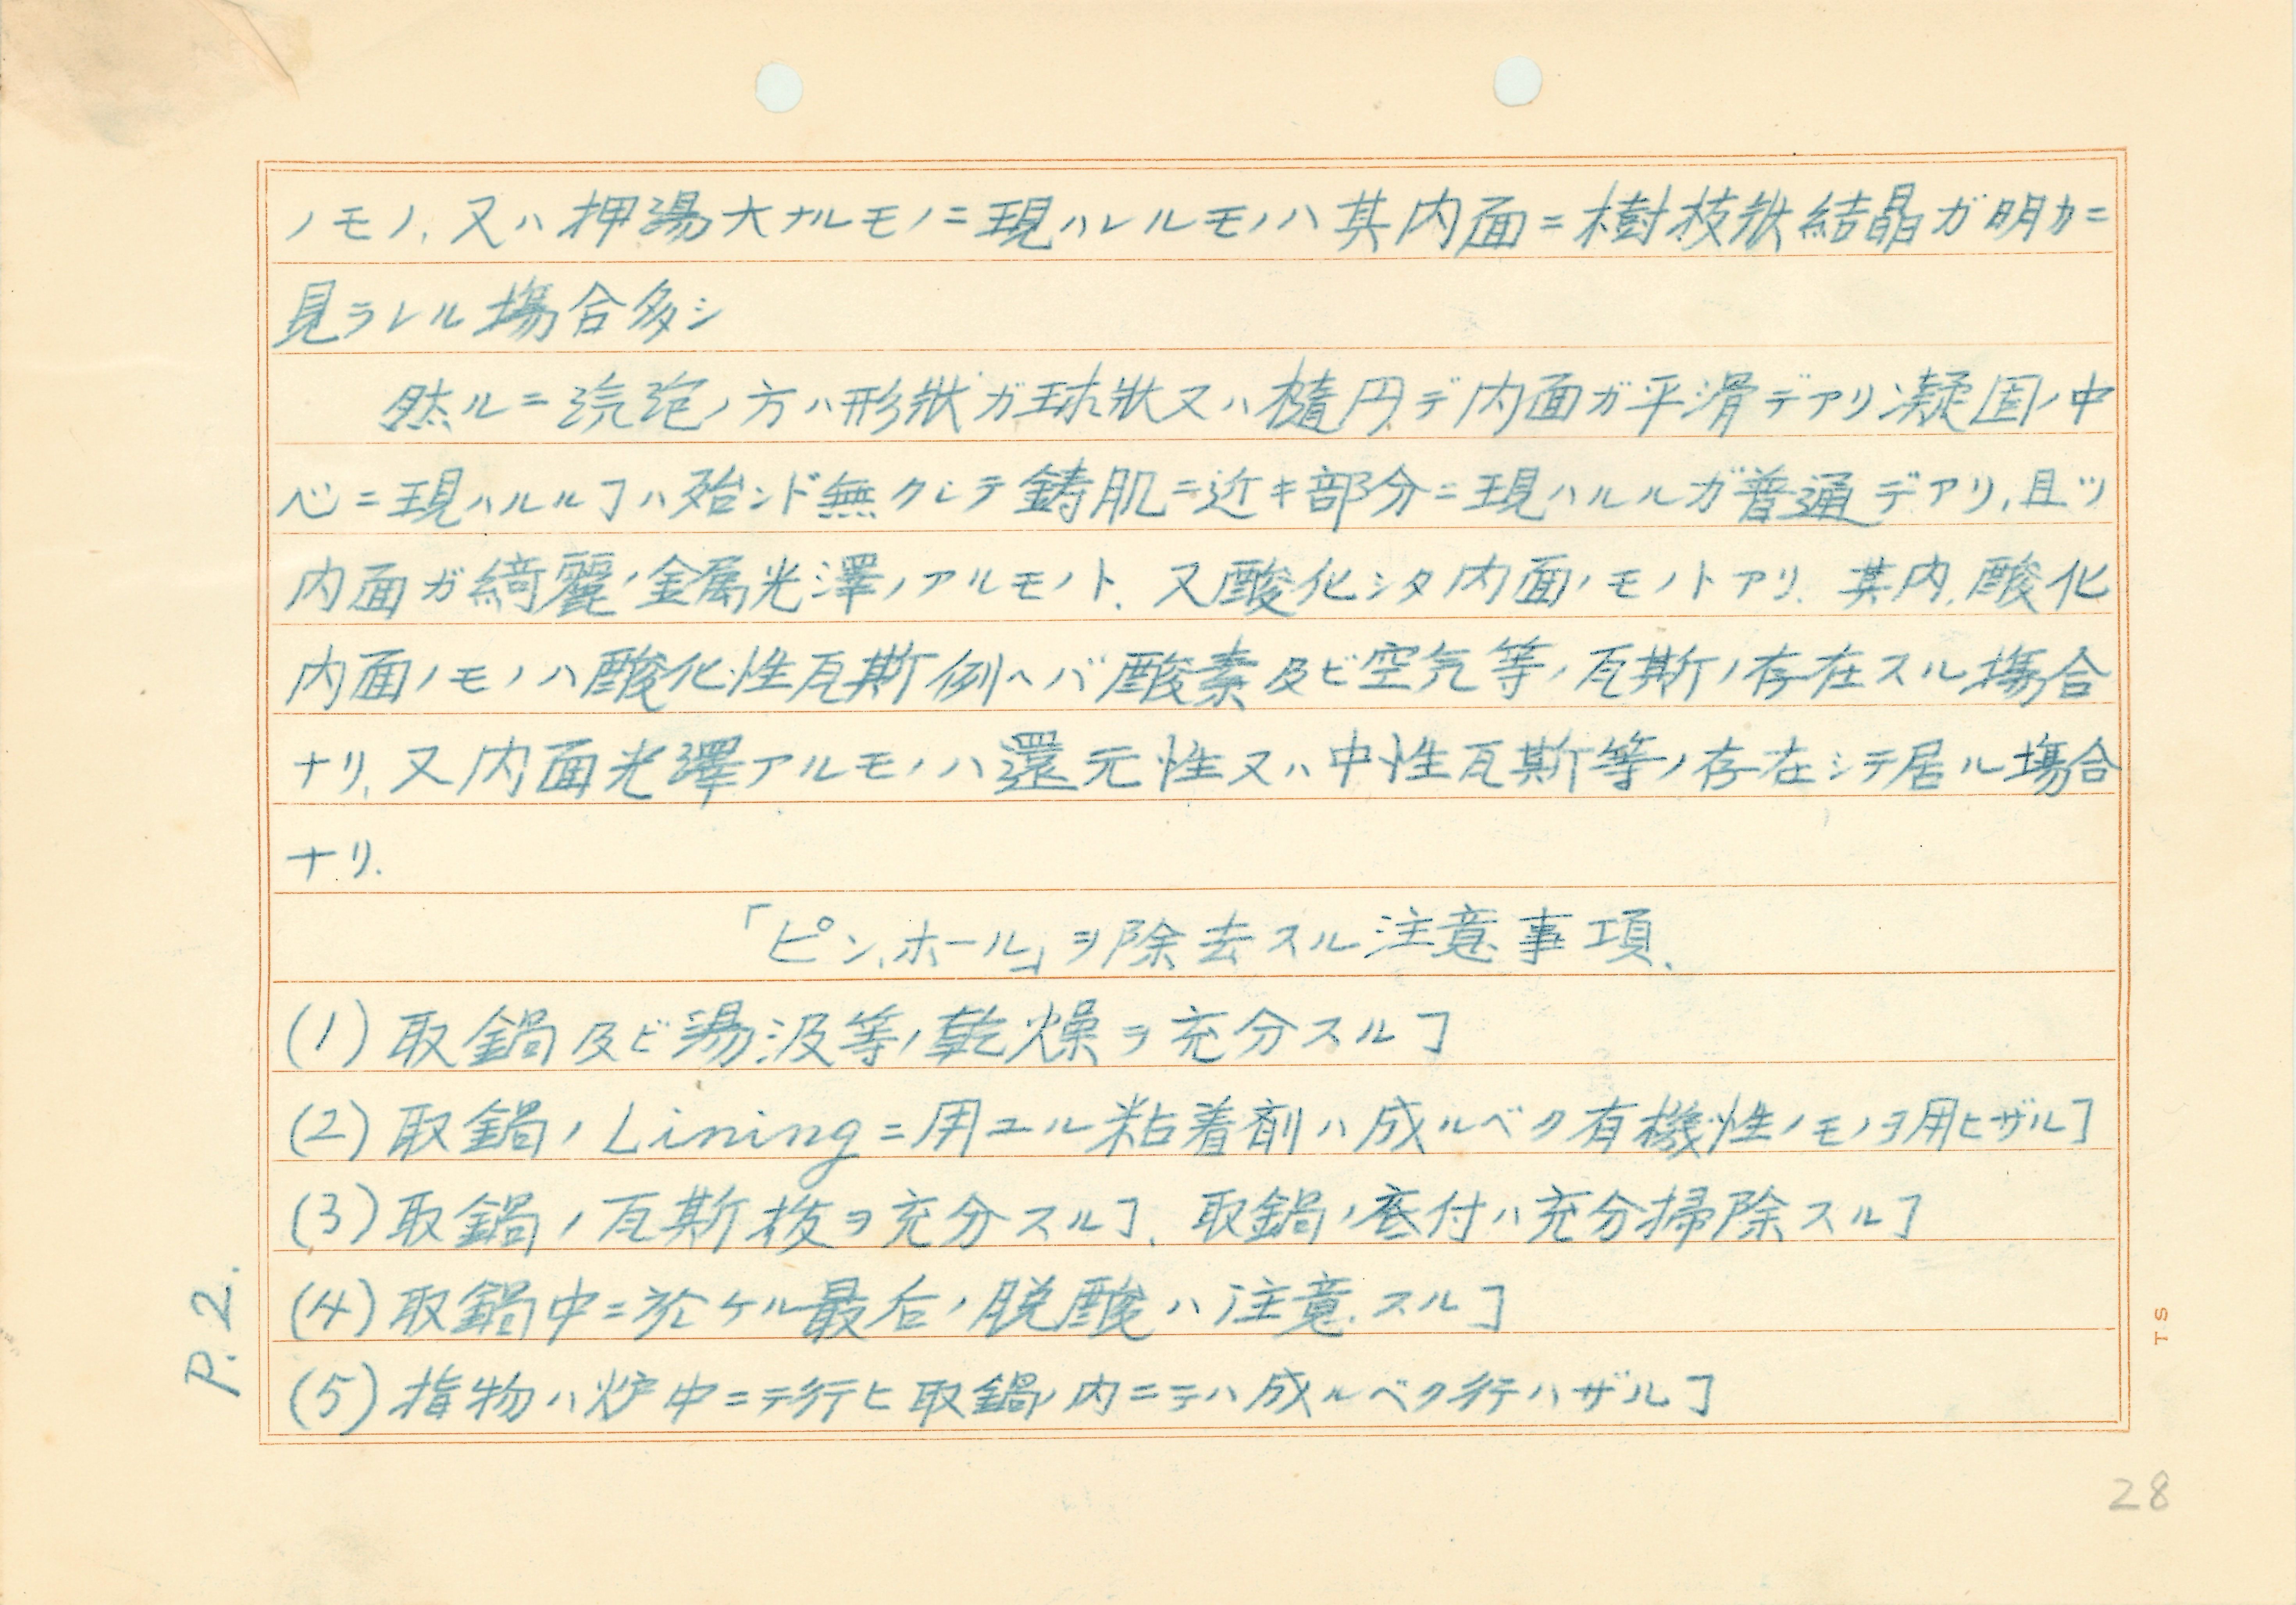 ノモノ、又ハ押湯大ナルモノニ現ハレルモノハ其内面ニ樹枝狀結晶ガ明カニ
見ラレル塲合多シ
然ルニ泡ノ方ハ形狀ガ球狀又ハ楕円デ内面ガ平滑デアリ凝固ノ中
心ニ現ハルルヿハ殆ンド無クシテ鋳肌ニ近キ部分ニ現ハルルガ普通デアリ、且ツ
内面ガ綺麗ノ金属光澤ノアルモノト、又酸化シタ内面ノモノトアリ、其内、酸化
内面ノモノハ酸化性瓦斯例ヘバ酸素及ビ空気等ノ瓦斯ノ存在スル塲合
ナリ、又内面光澤アルモノハ還元性又ハ中性瓦斯等ノ存在シテ居ル塲合
ナリ.
「ピン、ホール」ヲ除去スル注意事項、
(1) 取鍋及ビ湯汲等ノ乾燥ヲ充分スルヿ
(2) 取鍋ノLiningニ用ユル粘着剤ハ成ルベク有機性ノモノヲ用ヒザルヿ
(3) 取鍋ノ瓦斯抜ヲ充分スルヿ、取鍋ノ底付ハ充分掃除スルヿ
(4) 取鍋中ニ於ケル最后ノ脱酸ハ注意スルヿ
(5) 指物ハ炉中ニテ行ヒ取鍋ノ内ニテハ成ルベク行ハザルヿ
P.2.
TS
28